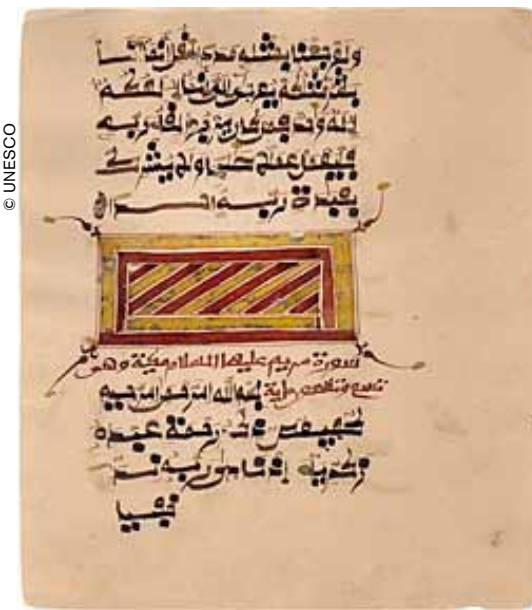 © UNESCO
ولو جئنا بمثله مددا قل انما انا
بشر مثلكم يوحى الي انما الهكم
اله وحد فمن كان يرجوا لقا ربه
فليعمل عملا صلحا ولا يشرك
بعبدة ربه احدا
سورة مريم عليها السلام مكية وهي
تسع وتسعون اية بسم الله الرحمن الرحيم
كهيعص ذكر رحمة عبده
زكريا اذ نادى ربه ندا
خفيا